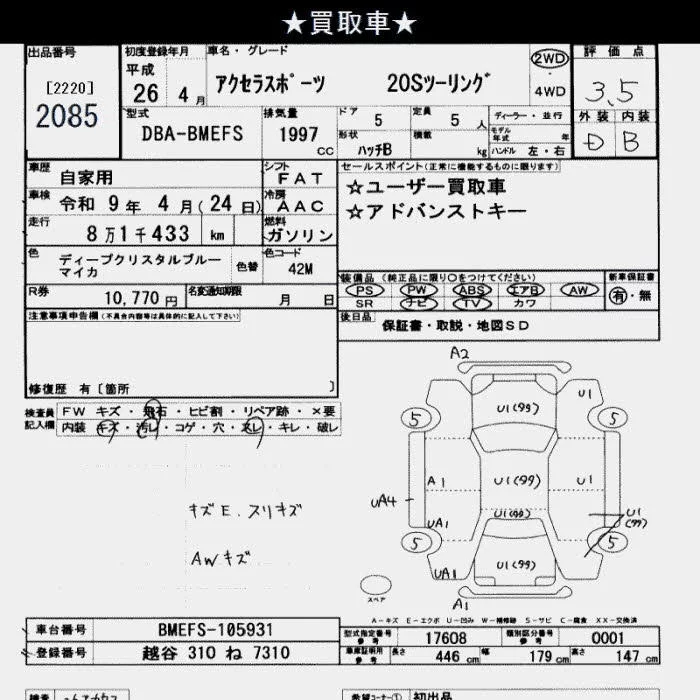 ★買取車★
出品番号 初度登録年月 車名・グレード 評価点
[2220] 平成 アクセラスポーツ 20Sツーリング 2WD 3.5
2085 26 4月 4WD
型式 排気量 ドア 定員 ディーラー・並行 外装 内装
DBA-BMEFS 1997 cc 5 5人 モデル年式 年 D B
形状 積載
ハッチB kg ハンドル 左・右
車歴 自家用 シフト FAT セールスポイント(正常に機能するものに限ります)
車検 令和 9年 4月(24日) 冷房 AAC ☆ユーザー買取車
走行 8万1千433 km 燃料 ガソリン ☆アドバンストキー
色 ディープクリスタルブルーマイカ 色替 色コード 42M
装備品(純正品に限り○をつけてください) 新車保証書
R券 10,770円 名変通知期限 月 日 PS PW ABS エアB AW 有・無
SR ナビ TV カワ
注意事項申告欄(不具合内容等は具体的に記入して下さい) 後日品 保証書・取説・地図SD
修復歴 有〔箇所 〕
検査員記入欄 FW キズ・飛石・ヒビ割・リペア跡・×要
内装 キズ・汚レ・コゲ・穴・スレ・キレ・破レ
A2
U1(99) U1
5 5
A1 U1(99) U1
UA4
U1(99) U1(99)
UA1
5 5
U1(99)
UA1
A1
キズE、スリキズ
AWキズ
スペア
A-キズ E-エクボ U-凹み W-補修跡 S-サビ C-腐食 XX-交換済
車台番号 BMEFS-105931 型式指定番号 参考 17608 類別区分番号 参考 0001
登録番号 越谷 310 ね 7310 車庫証明用 参考 長さ 446 cm 幅 179 cm 高さ 147 cm
検査 希望コーナー① 初出品